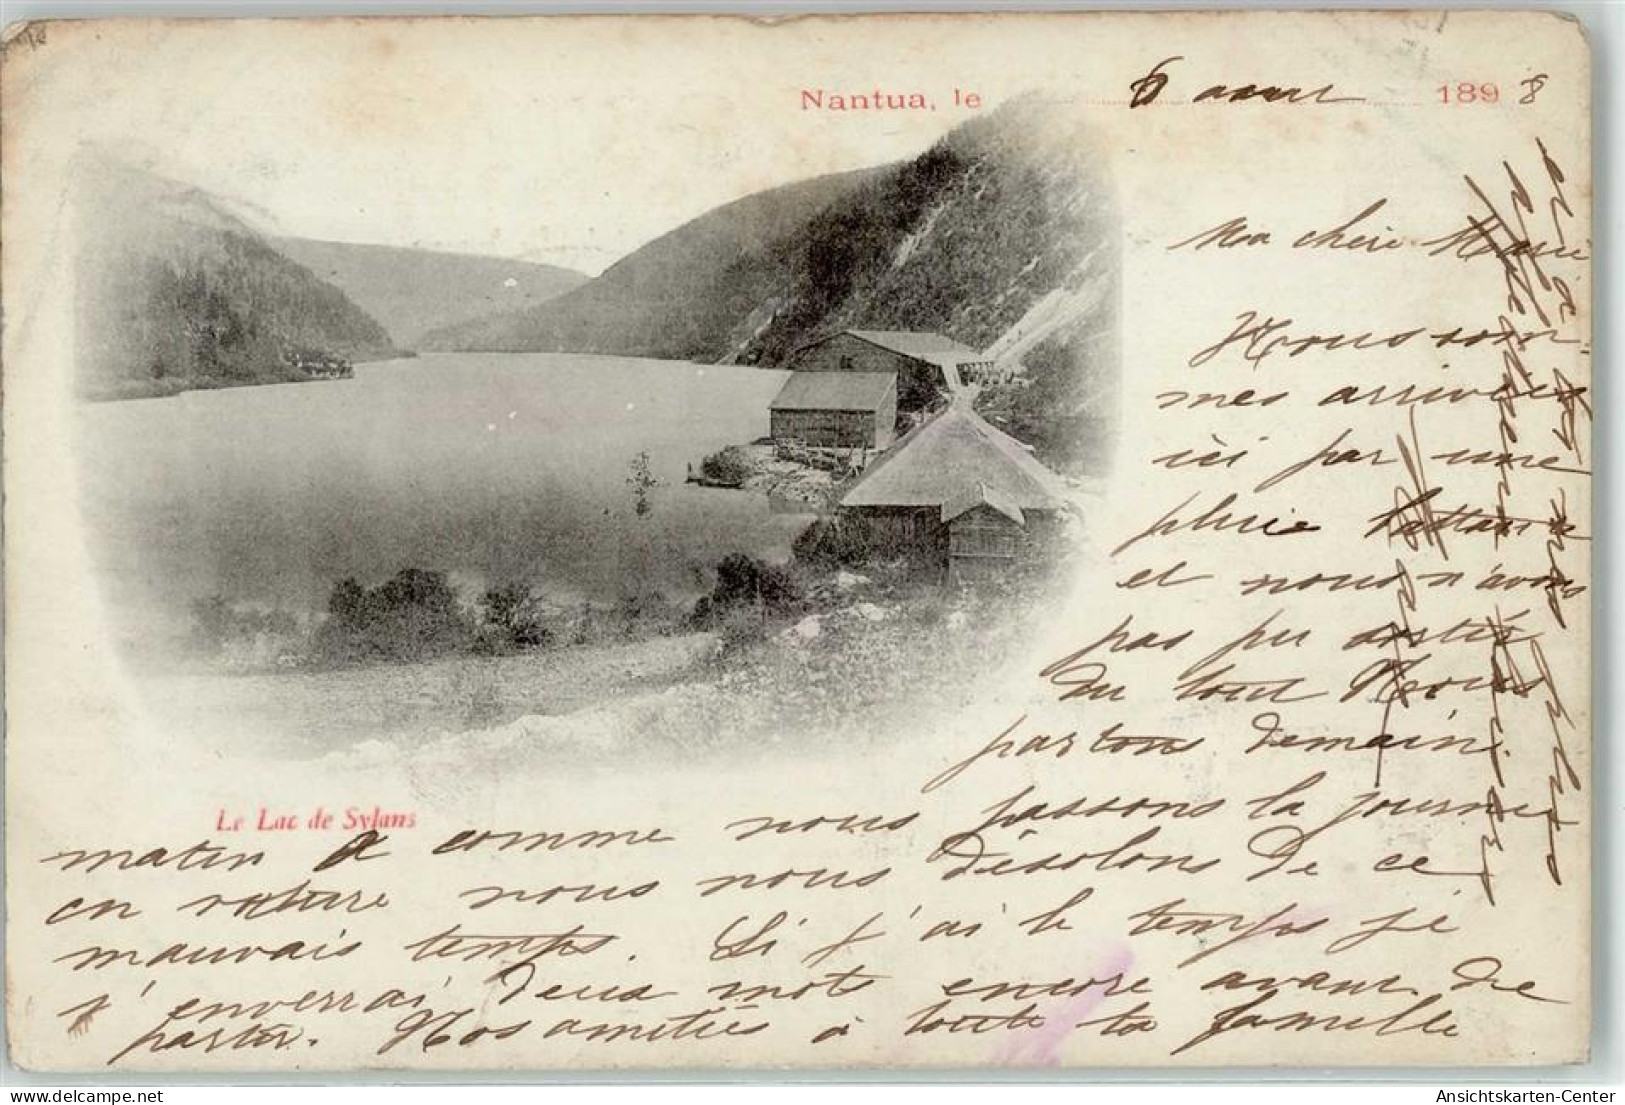 Nantua, le 6 aout 1898
Ma chère Marie
Nous som-
mes arrivés
ici par une
pluie battante
et nous n'avons
pas pu sortir
du tout Nous
partons demain
Le Lac de Sylans
matin comme nous passons la journée
en voiture nous nous désolons de ce
mauvais temps. Si j'ai le temps je
t'enverrai deux mots encore avant de
partir. Nos amitiés à toute ta famille
et à toi nos plus
Ansichtskarten-Center